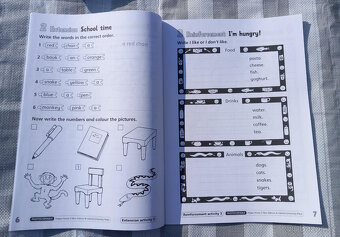 2 Extension School time
Write the words in the correct order.
1 red chair a
a red chair
2 book an orange
3 a table green
4 snake yellow a
5 blue pen a
6 monkey pink a
Now write the numbers and colour the pictures.
6
Extension activity 2
Reinforcement I'm hungry!
Write I like or I don't like.
Food
pasta.
cheese.
fish.
yoghurt.
Drinks
water.
milk.
coffee.
tea.
Animals
dogs.
cats.
snakes.
tigers.
Reinforcement activity 3
7